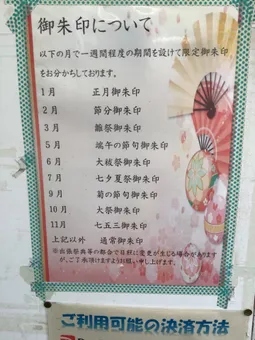 御朱印について
以下の月で一週間程度の期間を設けて限定御朱印
をお分かちしております。
1月 正月御朱印
2月 節分御朱印
3月 雛祭御朱印
5月 端午の節句御朱印
6月 大祓祭御朱印
7月 七夕夏祭御朱印
9月 菊の節句御朱印
10月 大祭御朱印
11月 七五三御朱印
上記以外 通常御朱印
※出張祭典等の都合で日程に変更が生じる場合があります
が、ご了承頂けますようお願い申し上げます。
ご利用可能の決済方法